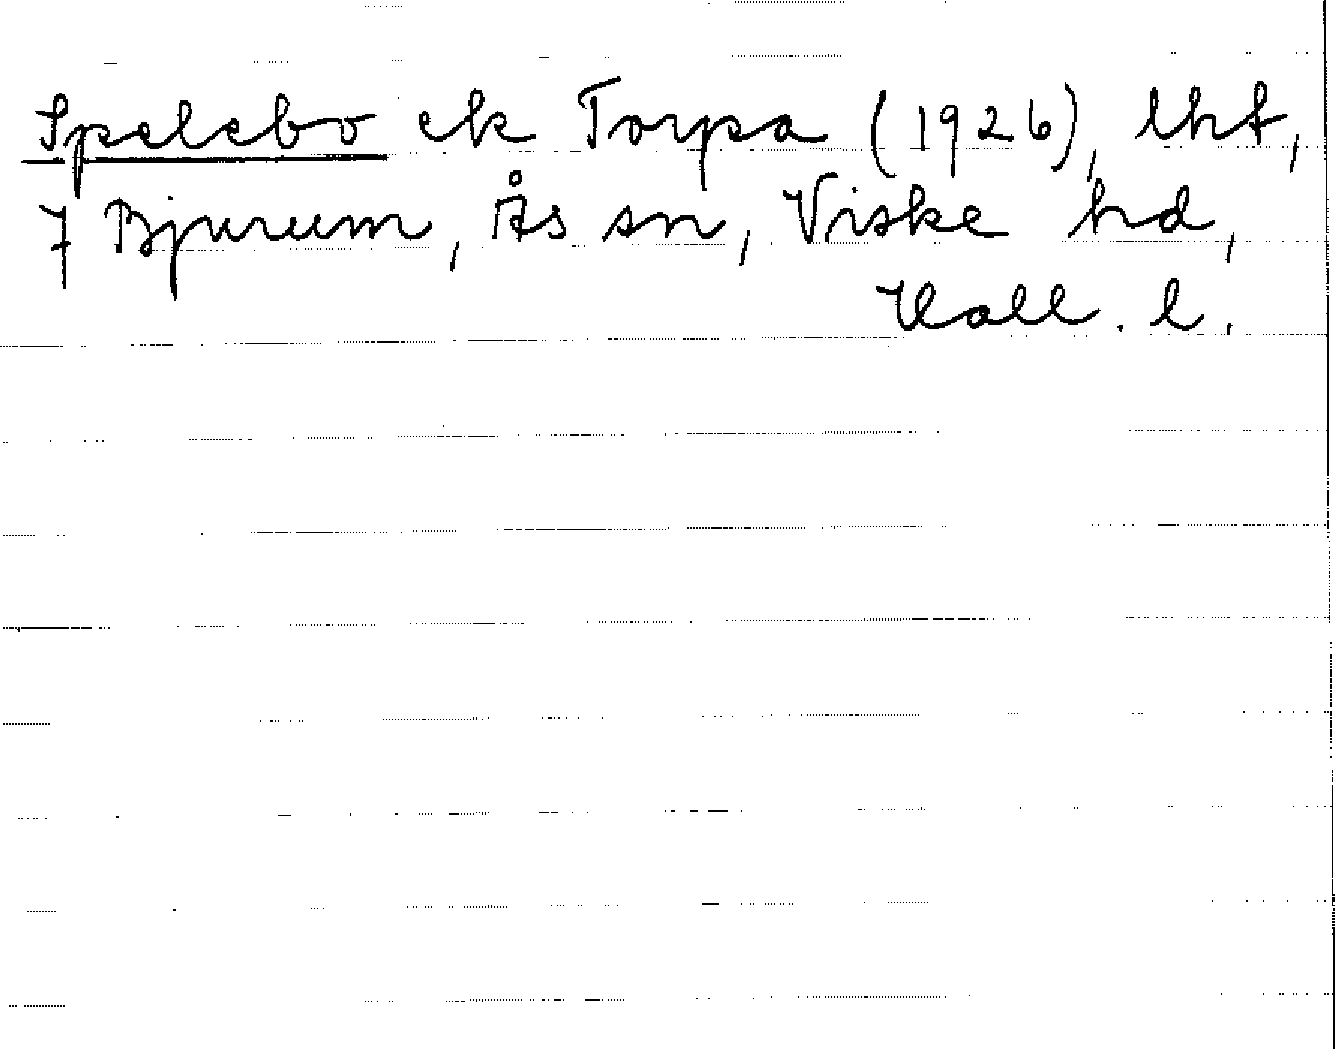 Spelebo ek Torpa (1926), lht,
7 Bjurum, Ås sn, Viske hd,
Hall. l.